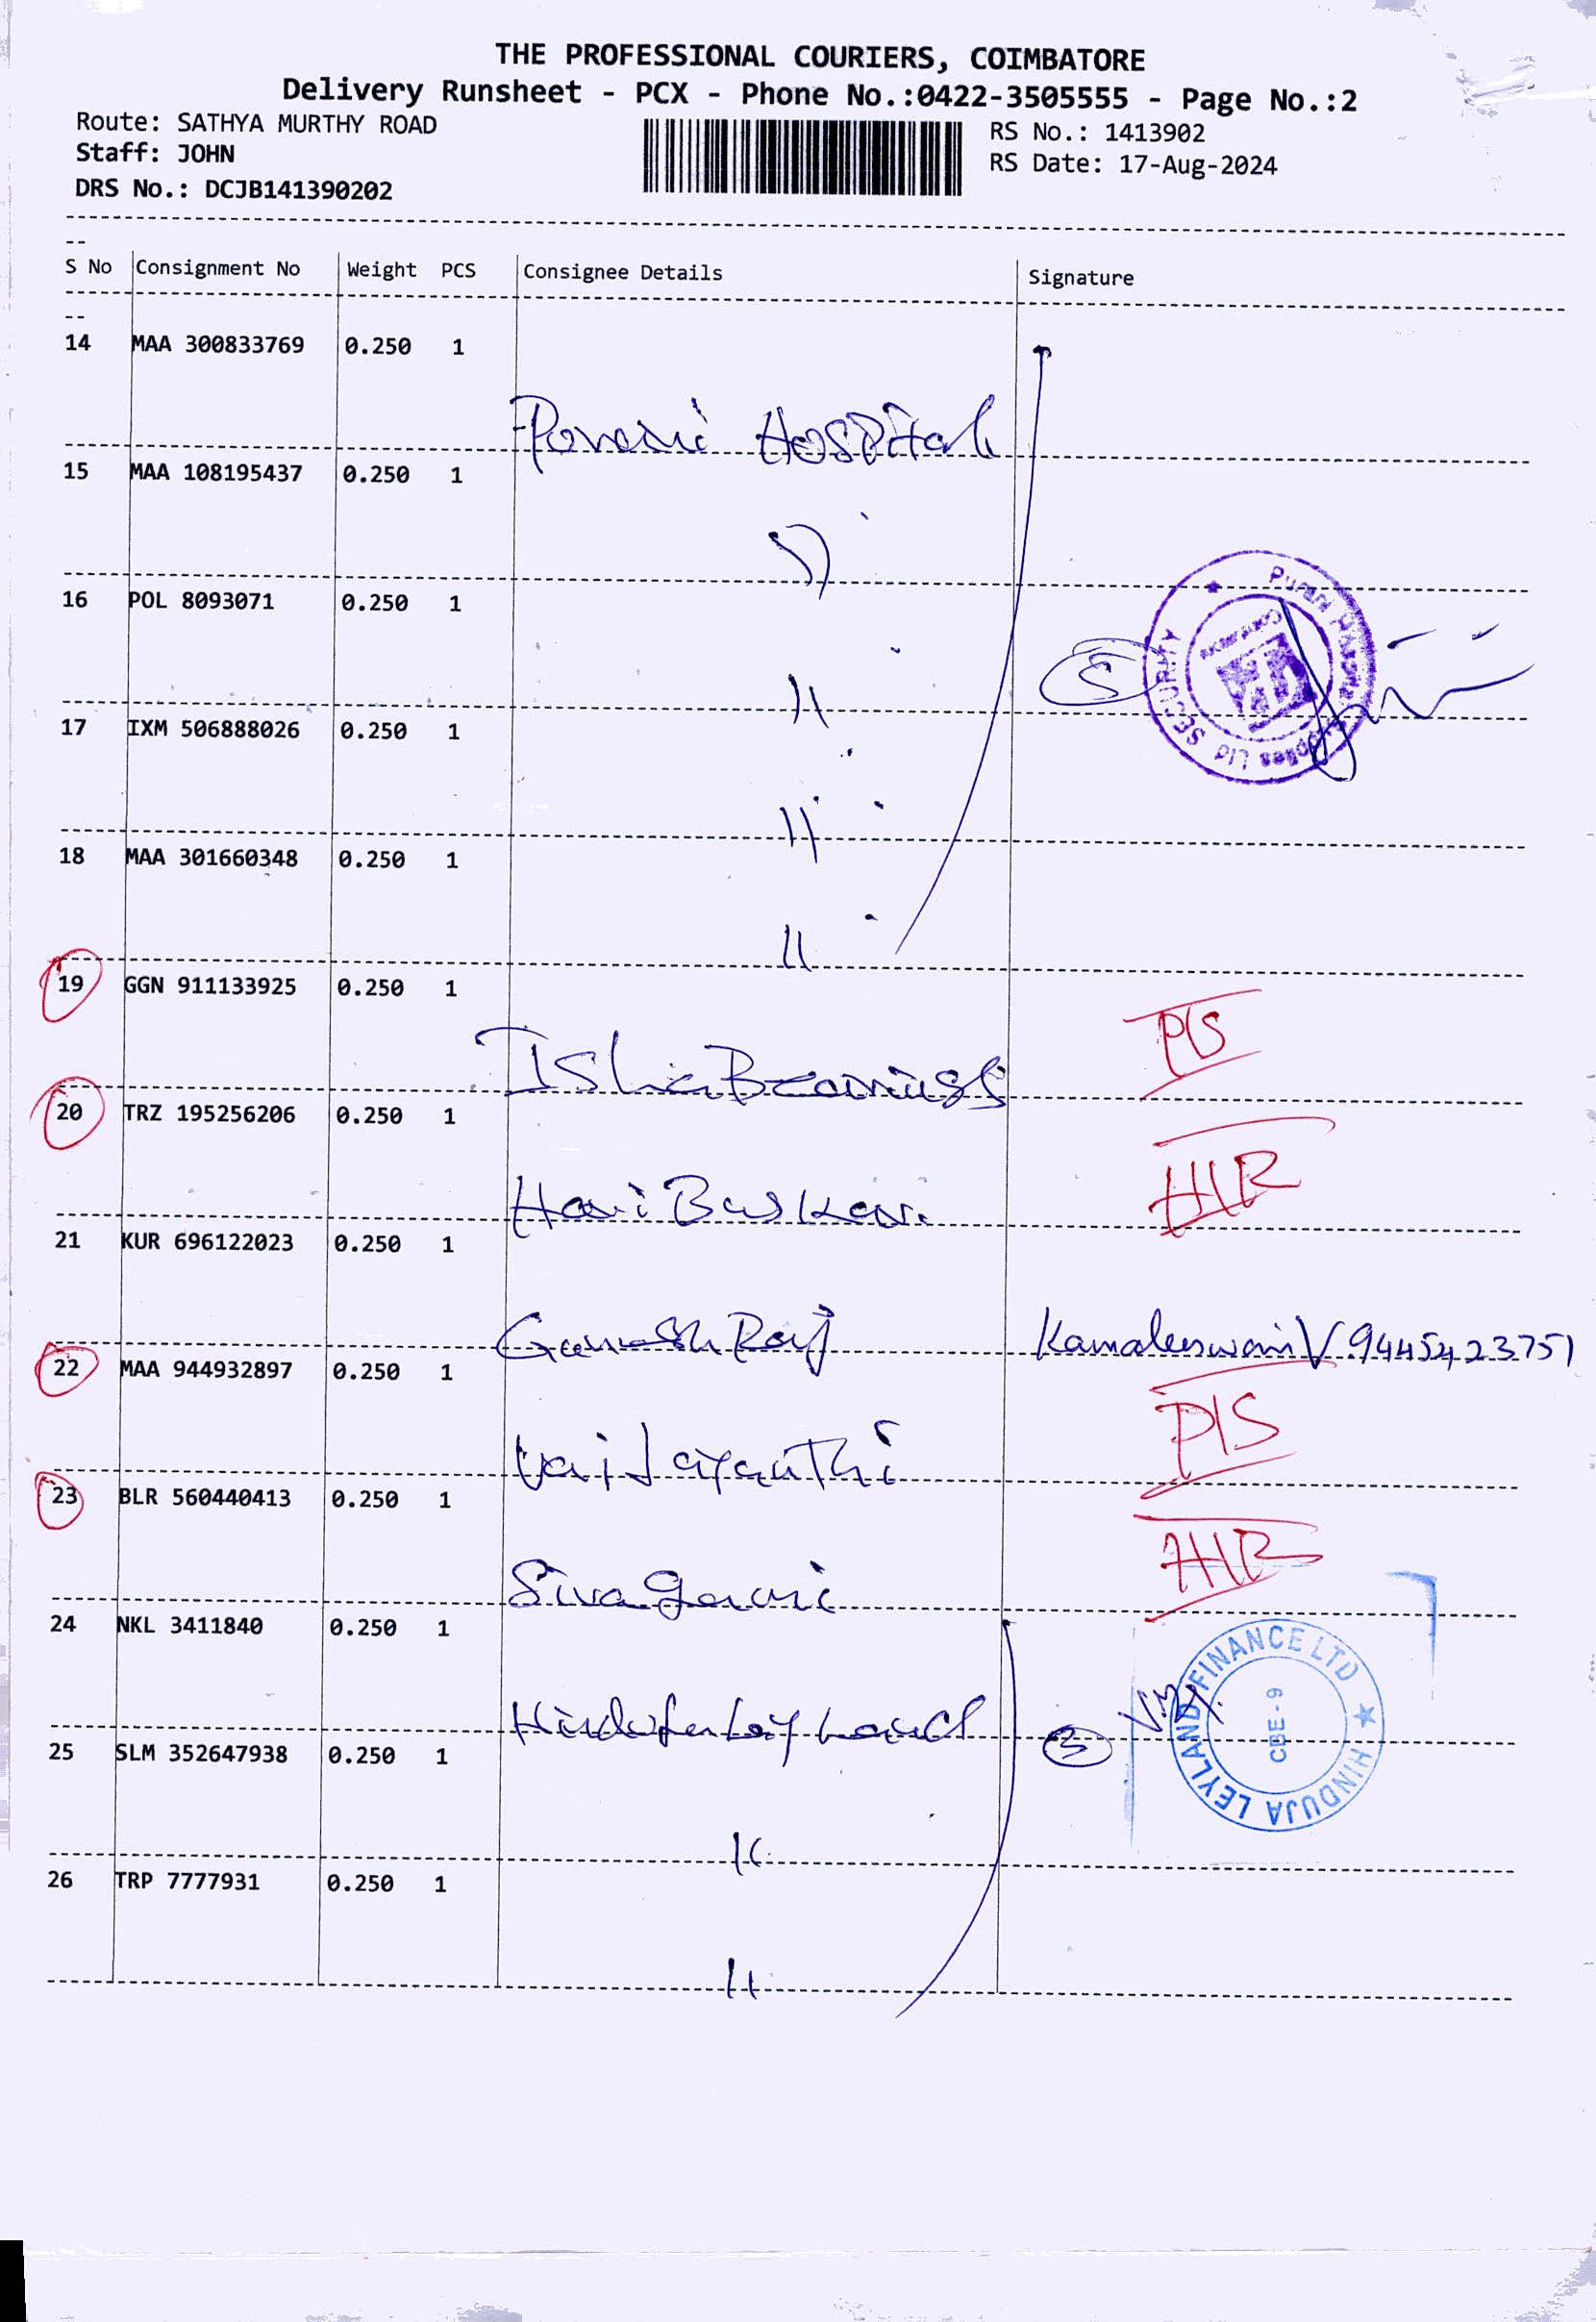 THE PROFESSIONAL COURIERS, COIMBATORE
Delivery Runsheet - PCX - Phone No.:0422-3505555 - Page No.:2
Route: SATHYA MURTHY ROAD
RS No.: 1413902
Staff: JOHN
RS Date: 17-Aug-2024
DRS No.: DCJB141390202
S No Consignment No Weight PCS Consignee Details Signature
14 MAA 300833769 0.250 1
Hospital
15 MAA 108195437 0.250 1
16 POL 8093071 0.250 1
Purani Hospital Supplies Ltd SECURITY
5
17 IXM 506888026 0.250 1
18 MAA 301660348 0.250 1
19 GGN 911133925 0.250 1
Isha
20 TRZ 195256206 0.250 1
Hari
21 KUR 696122023 0.250 1
Ganesh Raj
Kamaleswari V 9445423751
22 MAA 944932897 0.250 1
23 BLR 560440413 0.250 1
Siva
24 NKL 3411840 0.250 1
3
HINDUJA LEYLAND FINANCE LTD
CBE-9
25 SLM 352647938 0.250 1
26 TRP 7777931 0.250 1